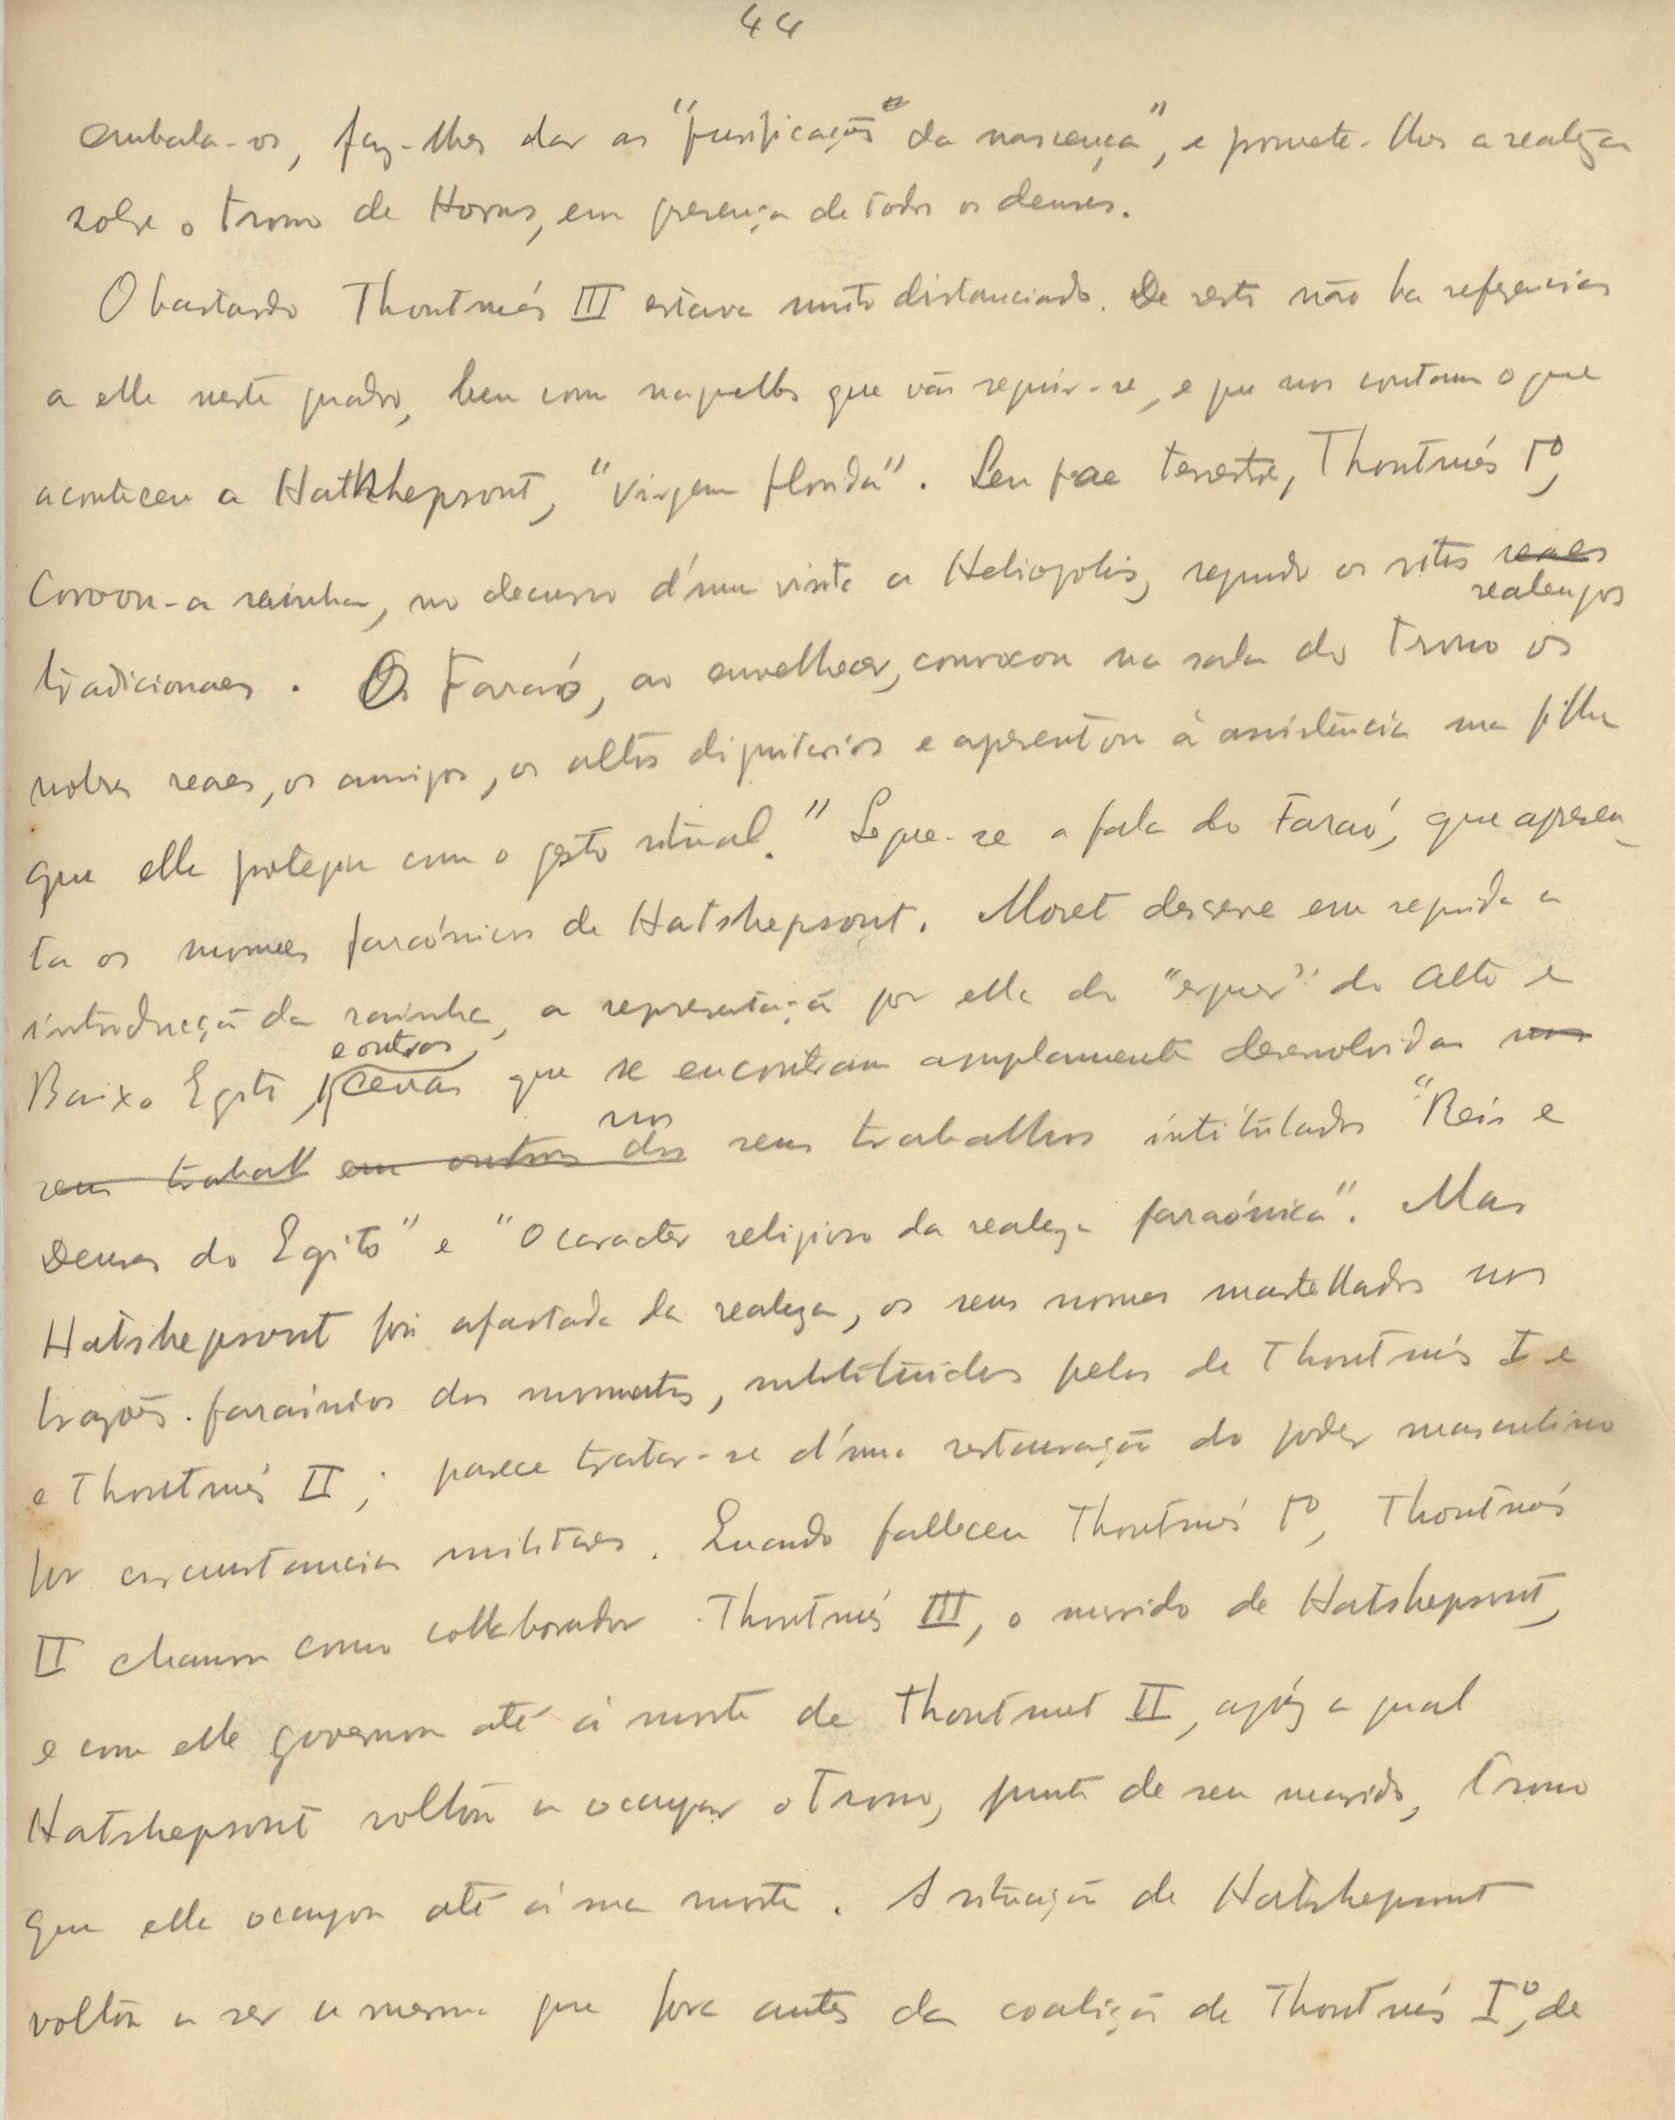 44
embala-os, faz-lhes dar as "purificações da nascença", e promete-lhes a realeza
sobre o trono de Horus, em presença de todos os deuses.
O bastardo Thoutmés III estava muito distanciado. De resto não ha referencias
a elle neste quadro, bem como naquelles que vão seguir-se, e que nos contam o que
aconteceu a Hatshepsout, "virgem florida". Seu pae terrestre, Thoutmés Iº,
coroou-a rainha, no decurso d'uma visita a Heliopolis, segundo os ritos reaes
realengos
tradicionaes. O Faraó, ao envelhecer, convocou na sala do trono os
nobres reaes, os amigos, os altos dignitarios e apresentou à assistência sua filha
que elle protegeu com o gesto ritual." Segue-se a fala do Faraó, que apresen-
ta os nomes faraónicos de Hatshepsout. Moret descreve em seguida a
introducção da rainha, a representação por ella do "erguer" do Alto e
e outras
Baixo Egito, cenas que se encontram amplamente desenvolvidas nos
nos
seus trabalh em outros dos seus trabalhos intitulados "Reis e
Deuses do Egito" e "O caracter religioso da realeza faraónica". Mas
Hatshepsout foi afastada da realeza, os seus nomes martellados nos
brazões faraónicos dos monumentos, substituidos pelos de Thoutmés I e
e Thoutmés II; parece tratar-se d'uma restauração do poder masculino
por circunstancias militares. Quando falleceu Thoutmés Iº, Thoutmés
II chamou como collaborador Thoutmés III, o marido de Hatshepsout,
e com elle governou até à morte de Thoutmet II, após a qual
Hatshepsout voltou a ocupar o trono, junto de seu marido, trono
que ella ocupou até à sua morte. A situação de Hatshepsout
voltou a ser a mesma que fora antes da coalição de Thoutmés Iº, de